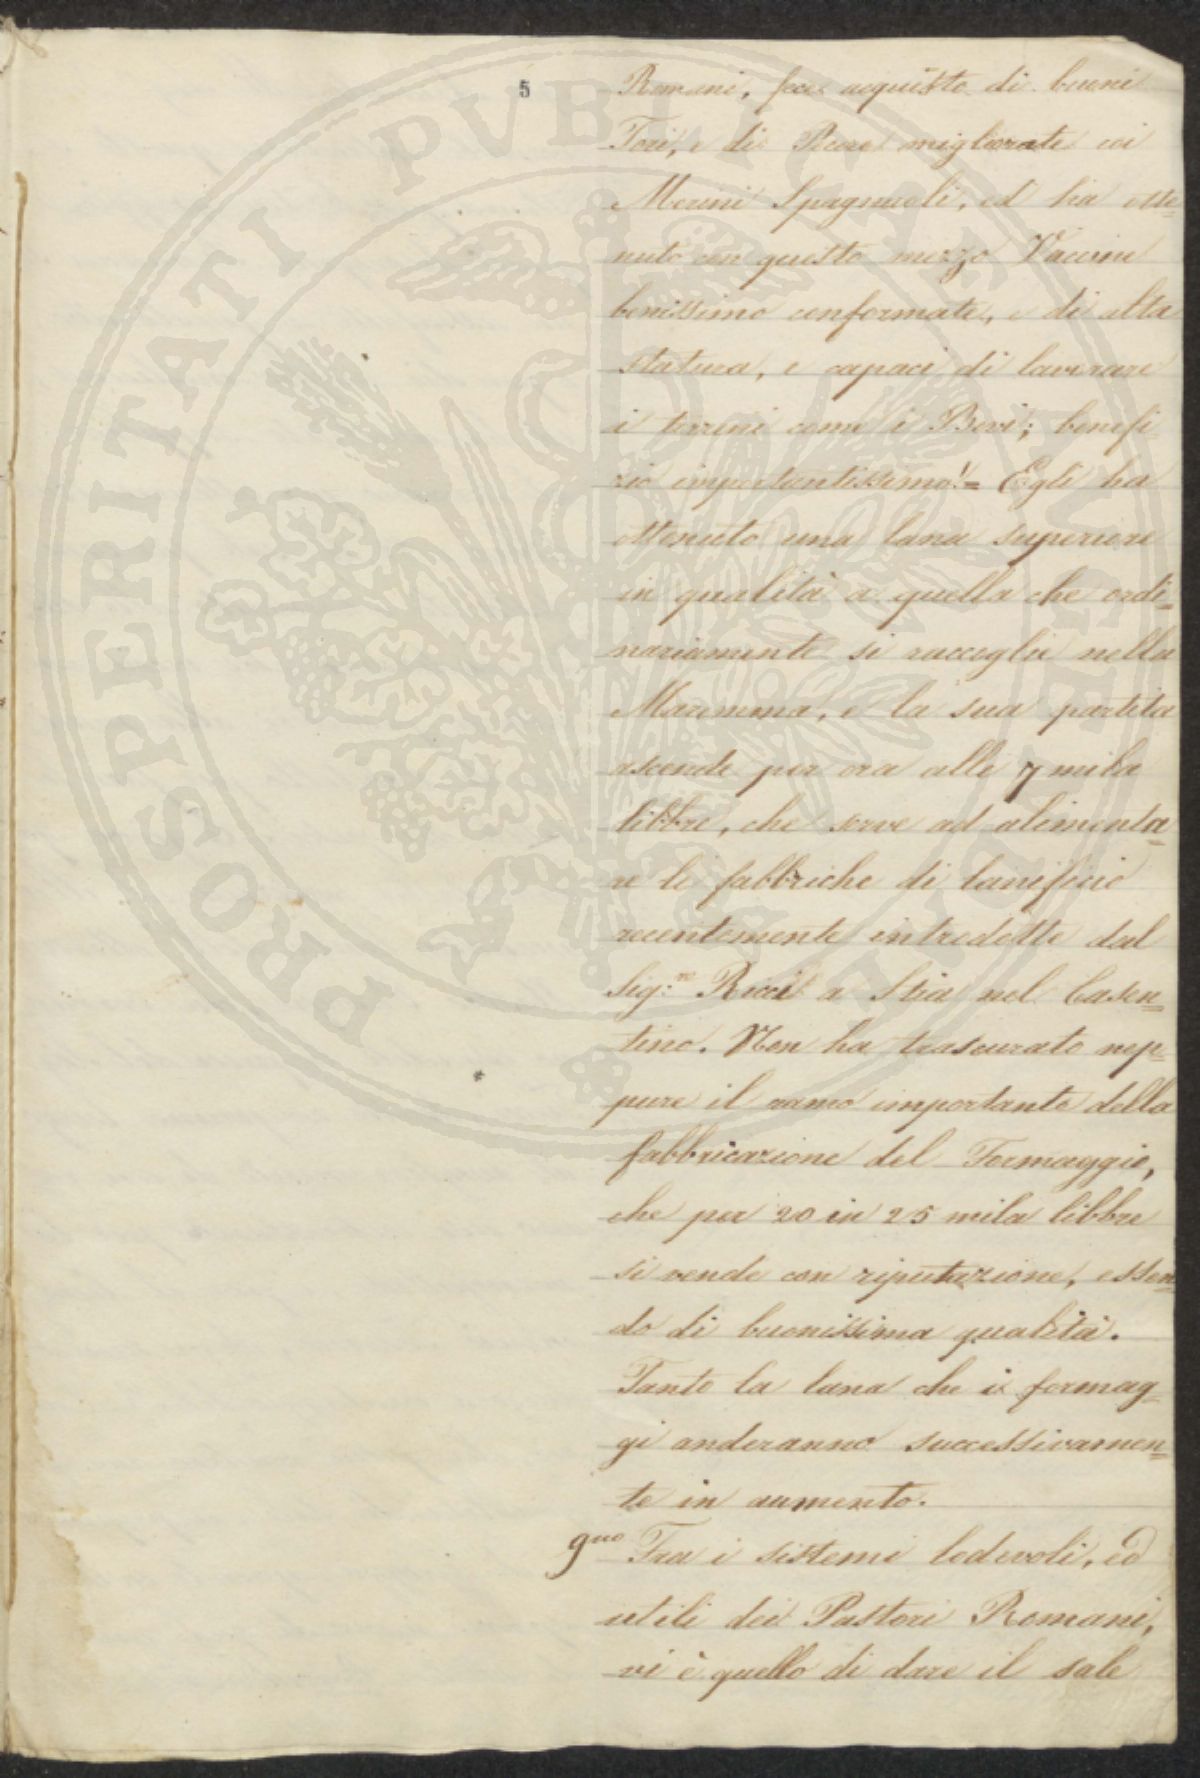 5
Romani, fece acquisto di buoni
Tori, e di Pecore migliorate coi
Merini Spagnuoli, ed ha otte=
nuto con questo mezzo Vaccine
benissimo conformate, e di alta
statura, e capaci di lavorare
i terreni come i Bovi; benefi-
zio importantissimo!= Egli ha
ottenuto una lana superiore
in qualità a quella che ordi=
nariamente si raccoglie nella
Maremma, e la sua partita
ascende per ora alle 7 mila
libbre, che serve ad alimenta=
re le fabbriche di lanificio
recentemente introdotte dal
Sig:re Ricci a Stia nel Casen=
tino. Non ha trascurato nep=
pure il ramo importante della
fabbricazione del Formaggio,
che per 20 in 25 mila libbre
si vende con riputazione, essen=
do di buonissima qualità.
Tanto la lana che i formag=
gi anderanno successivamen=
te in aumento.
9no Tra i sistemi lodevoli, ed
utili dei Pastori Romani,
vi è quello di dare il sale
PROSPERITATI PVBLICAE AVGENDAE